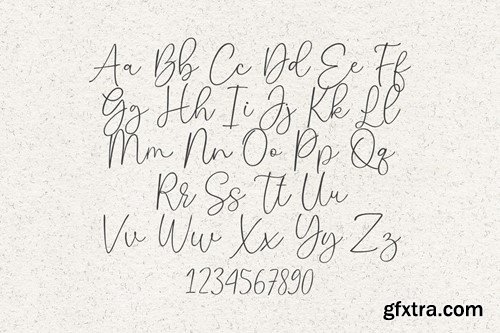 Aa Bb Cc Dd Ee Ff
Gg Hh Ii Jj Kk Ll
Mm Nn Oo Pp Qq
Rr Ss Tt Uu
Vv Ww Xx Yy Zz
1234567890
gfxtra.com